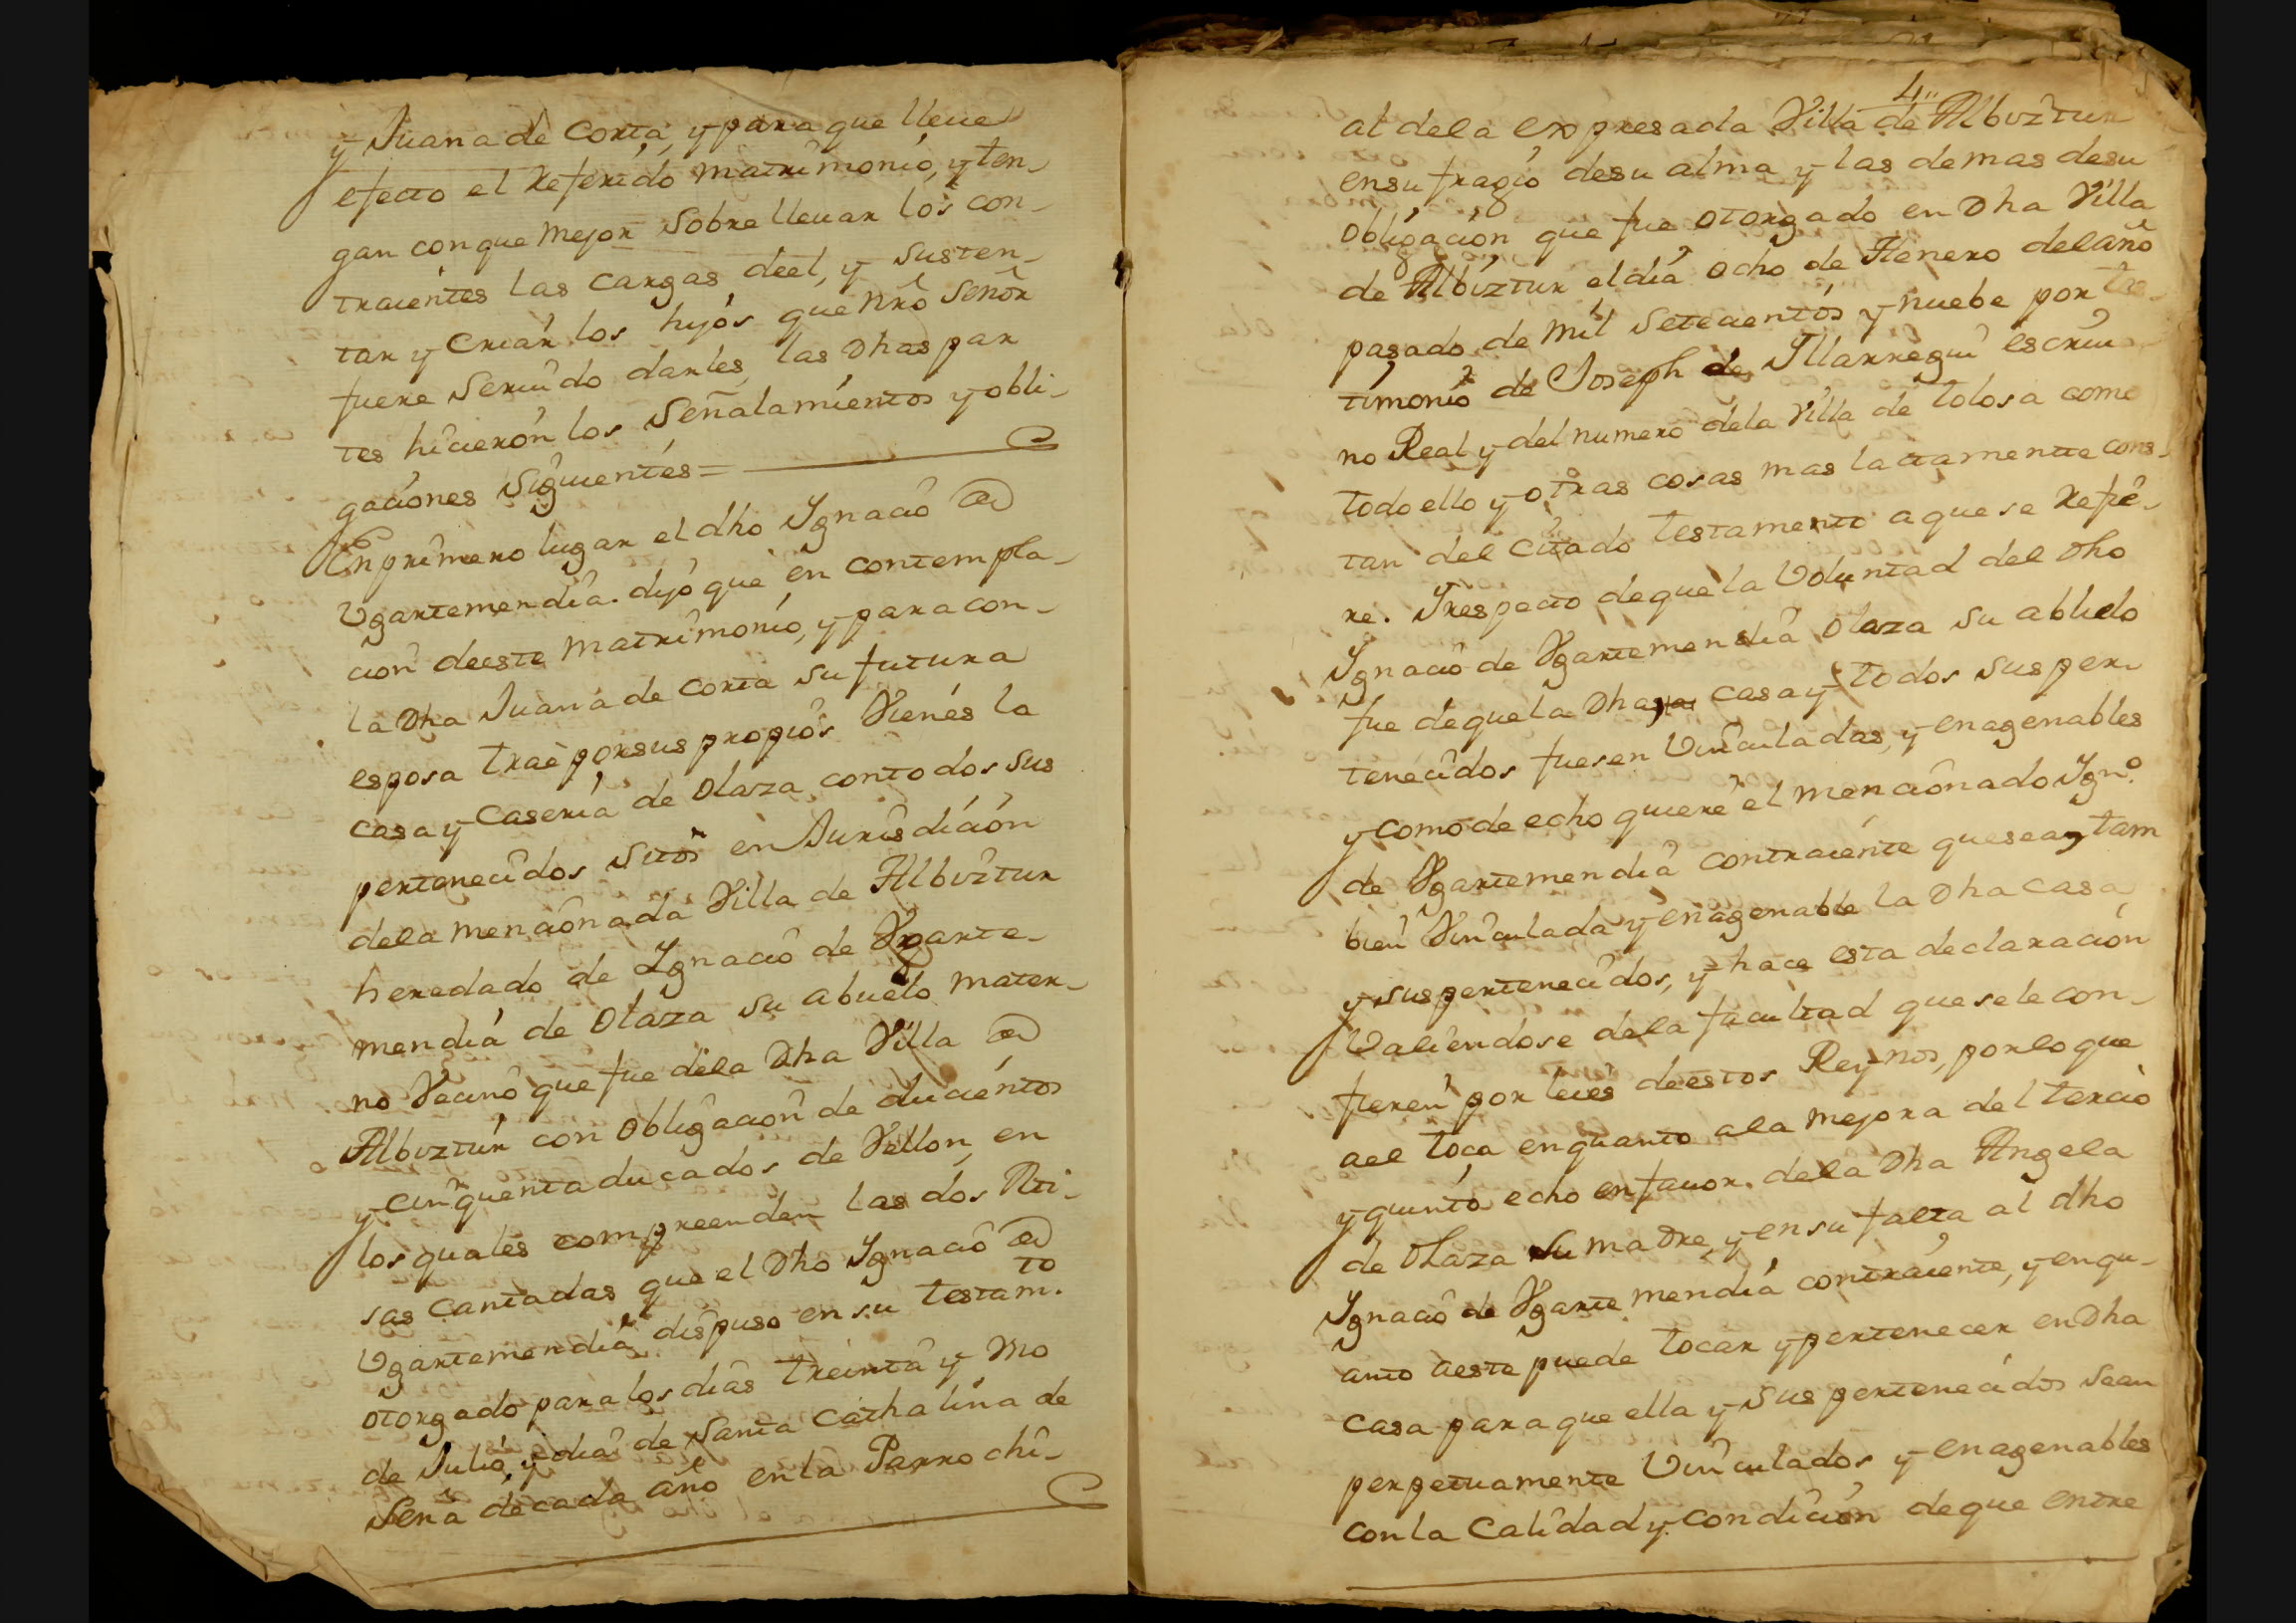 y Juana de Corta, y para que lleue
efecto el Referido matrimonio, y ten-
gan con que mejor Sobrelleuar los con-
traientes las cargas deel, y susten-
tar y Criar los hijos que nrõ Señor
fuere Seruido darles, las Dhas par
tes hicieron los Señalamientos y obli-
gaciones siguientes=
En primero lugar el dho Ygnacio de
Vgartemendia. dijo que en contempla-
cion deeste matrimonio, y para con-
la Dha Juana de Corta su futura
esposa trae por sus propios Vienes la
casa y Caseria de Olaza con todos sus
pertenecidos sitos en Jurisdicion
dela mencionada Villa de Albiztur
heredado de Ygnacio de Vgarte-
mendia de Olaza su abuelo mater-
no Vecino que fue dela Dha Villa de
Albiztur con obligacion de ducientos
y cinquenta ducados de Vellon, en
los quales compreenden las dos Mi-
sas Cantadas que el Dho Ygnacio de
Vgartemendia dispuso en su testam.to
otorgado para los dias treinta y Vno
de Julio, y dia de Santa Cathalina de
Sena de cada año en la Parrochi-
4"
al dela expresada Villa de Albiztur
en sufragio desu alma y las demas desu
obligacion que fue otorgado en Dha Villa
de Albiztur el dia ocho de Henero del año
pasado de mil setecientos y nuebe por tes-
timonio de Joseph de Yllarregui escriu
no Real y del numero dela Villa de tolosa como
todo ello y otras cosas mas lattamentte cons-
tan del Citado testamento a que se Refie-
re. Y respecto de que la Voluntad del Dho
Ygnacio de Vgartemendia Olaza su abuelo
fue de que la Dha casa y todos sus per
tenecidos fuesen Vinculadas, y enagenables
y como de echo quiere el mencionado Ygn.o
de Vgartemendia contraiente que sea, tam
bien Vinculada y enagenable la Dha casa
y sus pertenecidos, y hace esta declaracion
Valiendose dela facultad que se le con-
fieren por leies deestos Reynos, por lo que
ael toca en quanto ala mejora del tercio
y quinto echo en fauor. dela Dha Angela
de Olaza su madre, y en su falta al dho
Ygnacio de Vgartemendia contraiente, y en qu-
anto aeste puede tocar y pertenecer en Dha
casa para que ella y sus pertenecidos sean
perpetuamente Vinculados y enagenables
con la Calidad y condicion de que entre